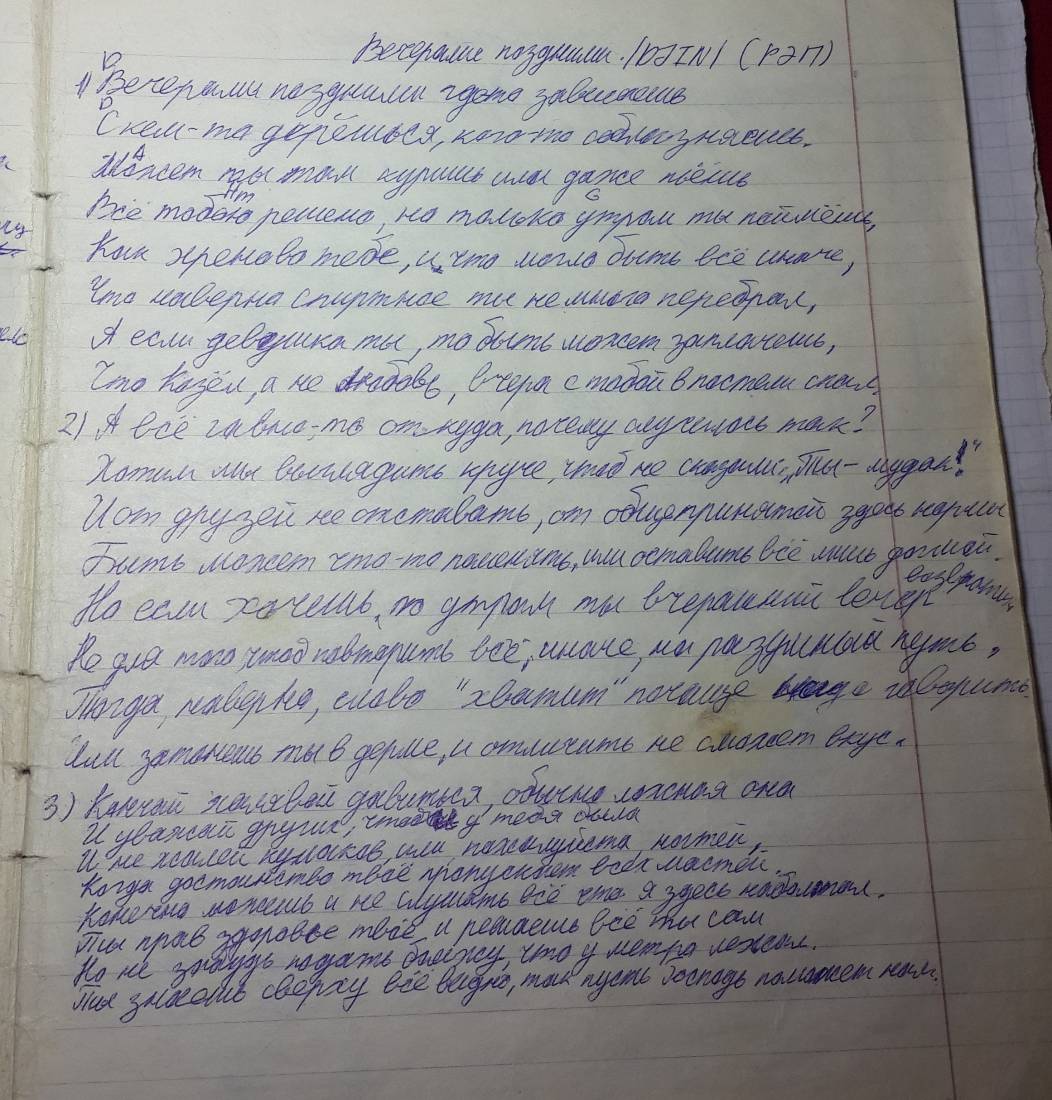 Вечерами поздними. |DJIN| (рэп)
D
1) Вечерами поздними где-то зависаешь
D
С кем-то дерёшься, кого-то соблазняешь.
A
Может ты там куришь или даже пьёшь
Hm G
Всё тобою решено, но только утром ты поймёшь,
Как хреново тебе, и что могло быть всё иначе,
Что наверно спиртное ты немного перебрал,
А если девушка ты, то быть может заплачешь,
Что Козёл, а не любовь, вчера с тобой в постели спал.
2) А всё гавно-то откуда, почему случилось так?
Хотим мы выглядить круче, чтоб не сказали: „Ты - мудак!"
И от друзей не отставать, от общепринятой здесь нормы
Быть может что-то поменять, или оставить всё лишь догмой.
Но если хочешь, то утром ты вчерашний вечер
Не для того чтоб повторить всё, иначе, на разумный путь,
Тогда, наверно, слово "хватит" почаще надо говорить.
Или затонешь ты в дерме, и отличить не сможет вкус.
3) Кончай халявой давиться, обычно ложная она
И уважай других, чтоб у тебя была
И не жалей кулаков, или, пожалуйста, ногтей,
Когда достоинство твоё пропускает всех мастей.
Конечно можешь и не слушать всё что я здесь наболтал.
Ты прав здоровье твоё и решаешь всё ты сам
Но не забудь подать бомжу, что у метро лежал.
Ты знаешь сверху всё видно, так пусть Господь поможет нам.